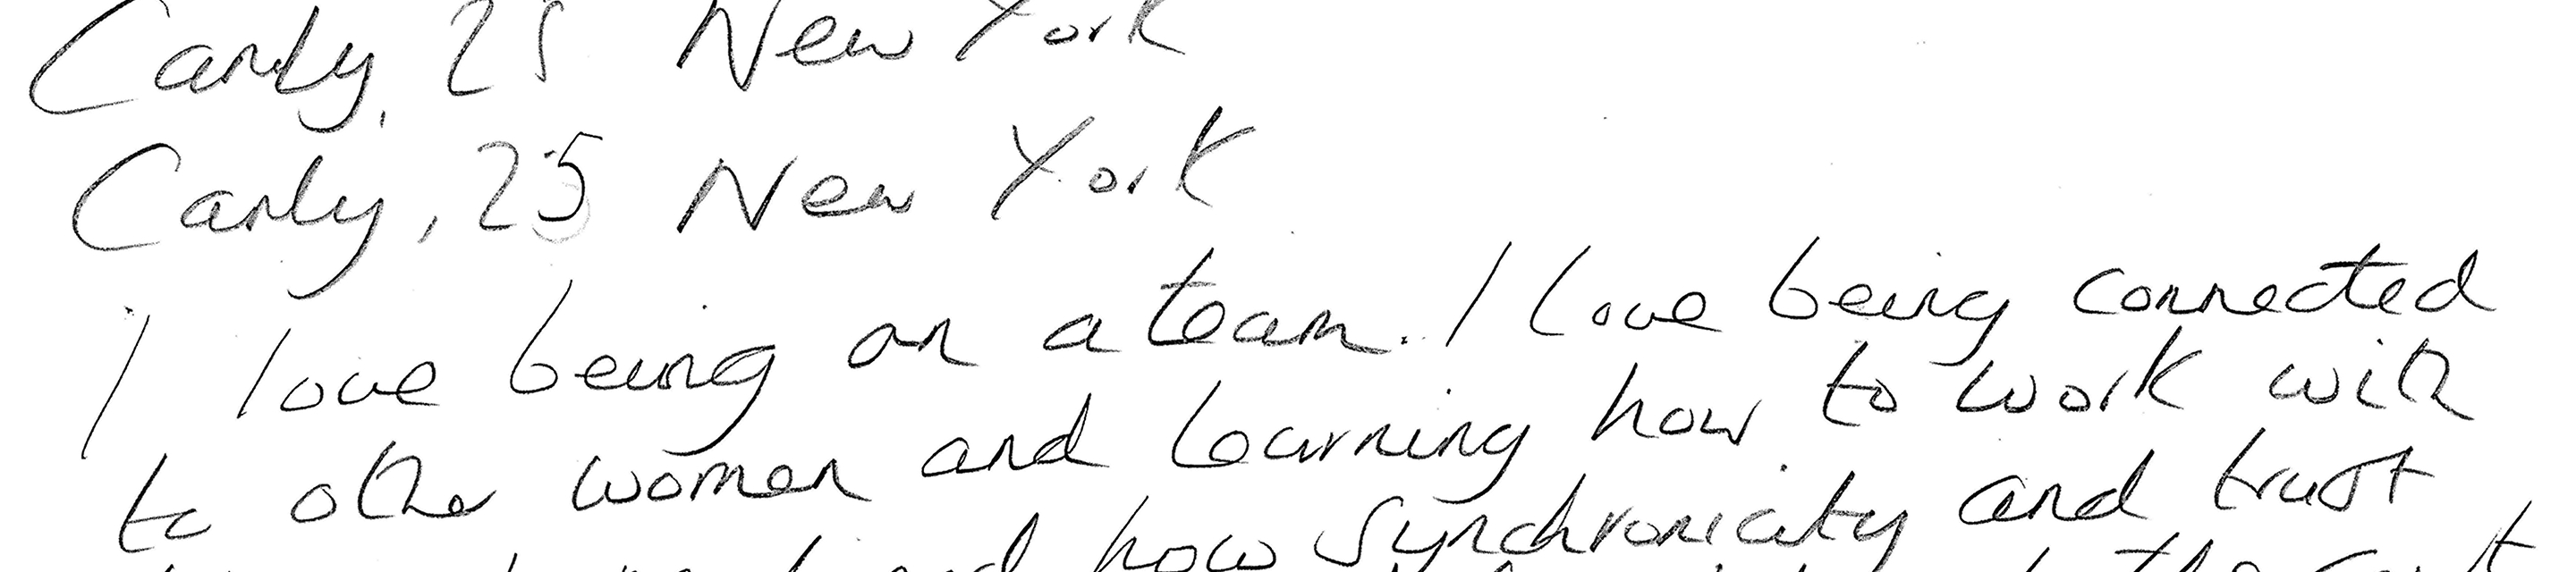 Carly, 25 New York
Carly, 25 New York
I love being on a team. I love being connected
to other women and learning how to work with
and how synchronicity and trust